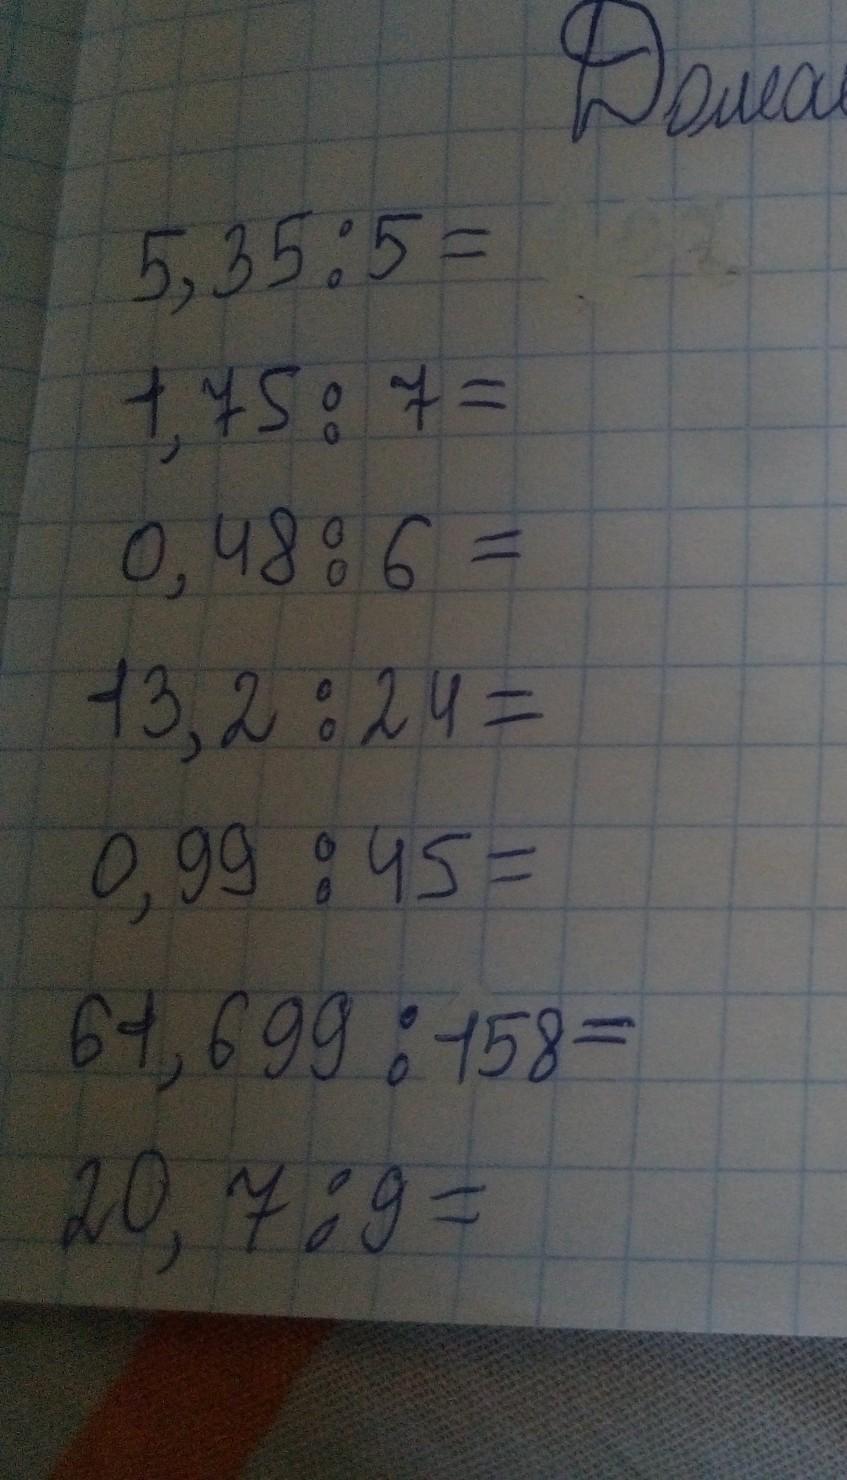 5,35:5=
1,75:7=
0,48:6=
13,2:24=
0,99:45=
61,699:158=
20,7:9=